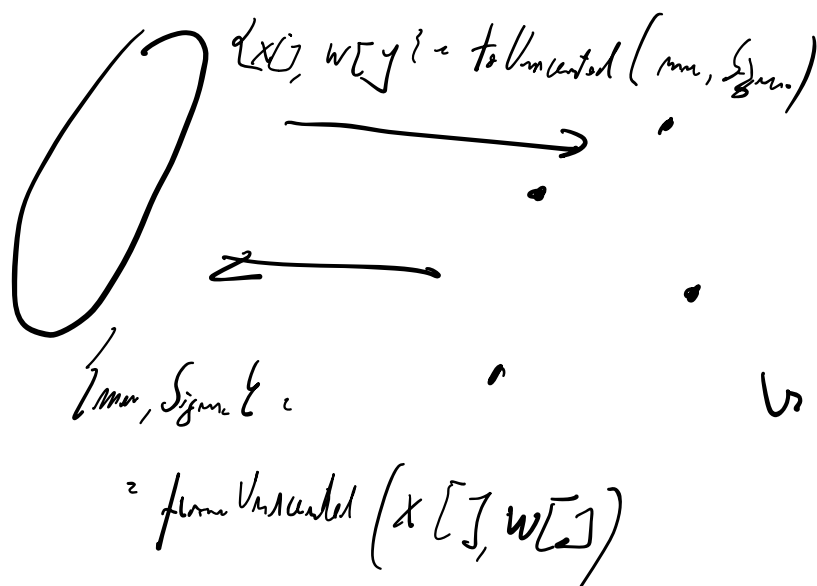 {X[], W[]} = toUnscented(mu, Sigma)
{mu, Sigma} =
= fromUnscented(X[], W[])